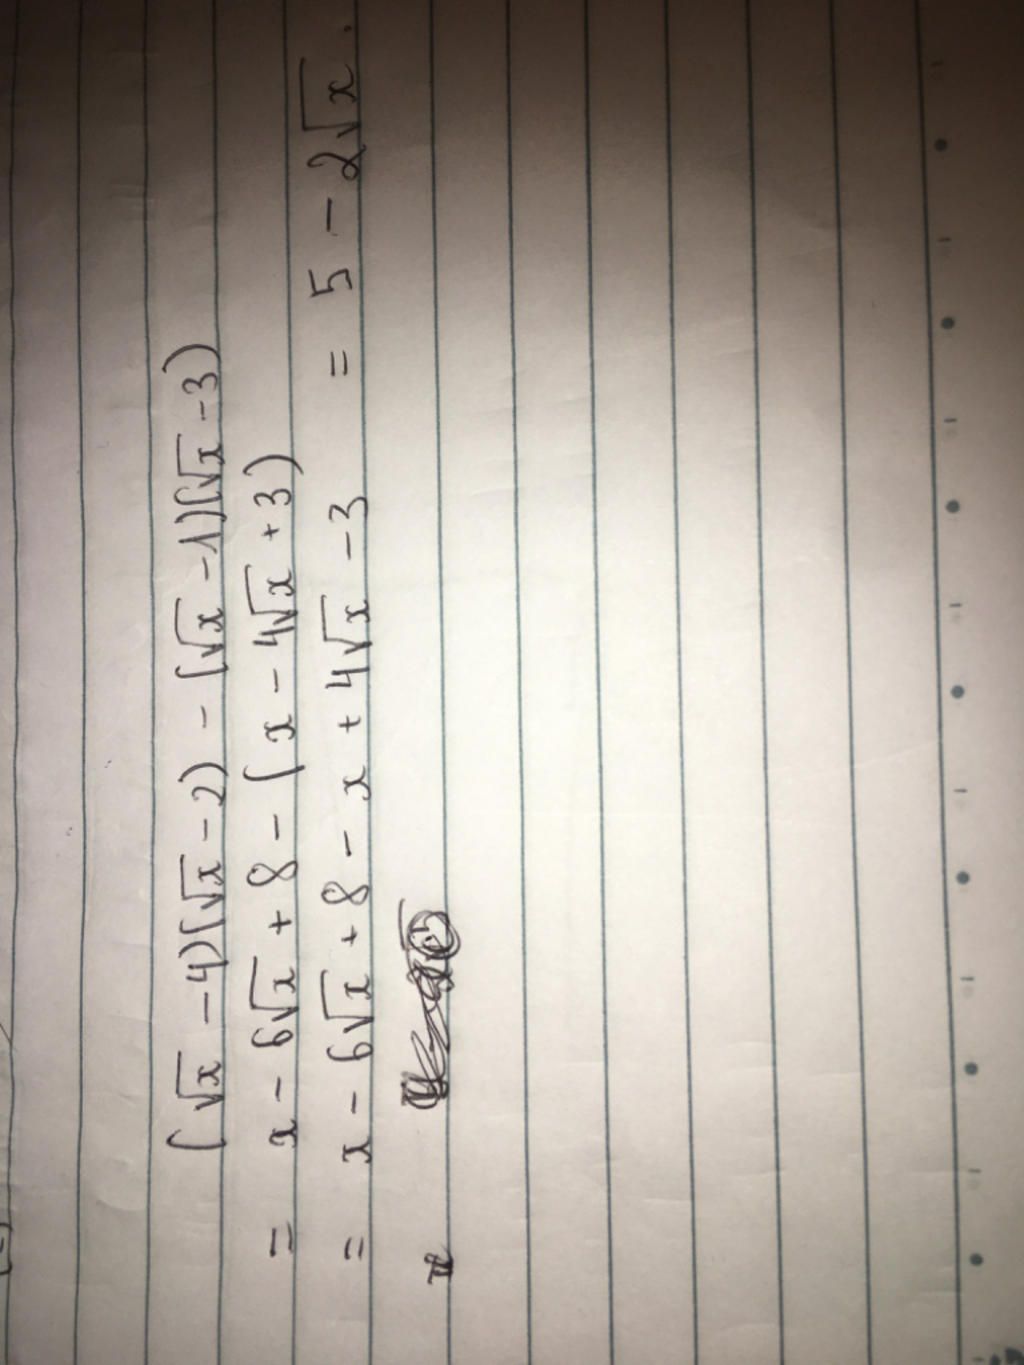 (√x - 4)(√x - 2) - (√x - 1)(√x - 3)
= x - 6√x + 8 - (x - 4√x + 3)
= x - 6√x + 8 - x + 4√x - 3 = 5 - 2√x.